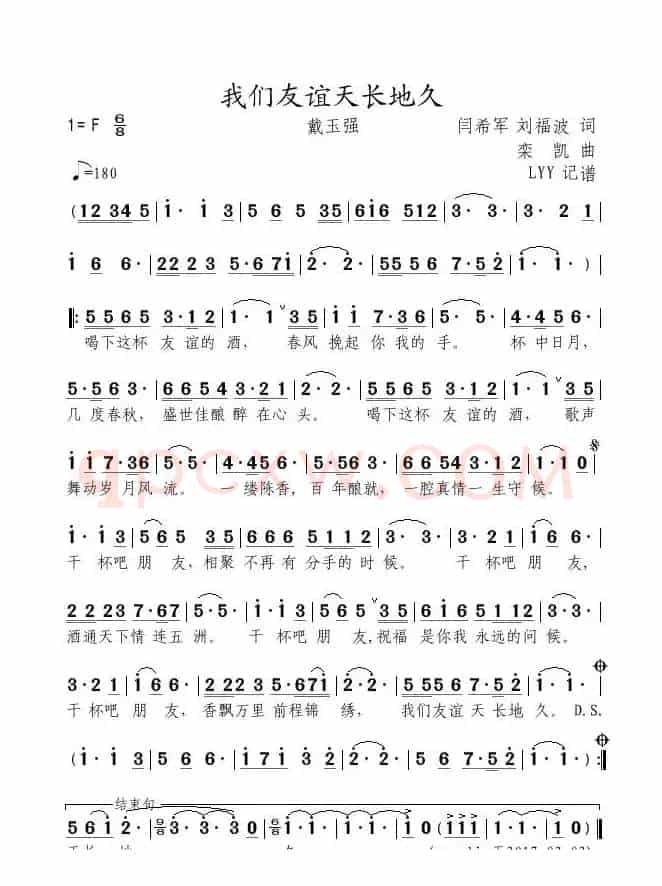 我们友谊天长地久
1= F 6/8 戴玉强 闫希军 刘福波 词
栾 凯 曲
♪=180 LYY 记谱
(12 345 | i· i 3 | 5 6 5 35 | 6i6 512 | 3· 3· | 3· 2 1 |
i 6 6· | 2223 5·67i | 2· 2· | 5556 7·52 | i· i·) |
‖: 5565 3·12 | 1· 1· ˅35 | ii 7·36 | 5· 5· | 4·456 |
喝下这杯 友 谊的 酒, 春风 挽起 你 我的 手。 杯 中日月,
5·563 | 6654 3·21 | 2· 2· | 5565 3·12 | 1· 1· ˅35 |
几 度春秋, 盛世佳酿 醉 在心 头。 喝下这杯 友 谊的 酒, 歌声
ii 7·36 | 5·5· | 4·456 | 5·563 | 6654 3·12 | 1· 10 |
舞动岁 月风 流。 一 缕陈香, 百 年酿就, 一腔真情一 生守 候。
i· i3 | 565 35 | 6i65 5112 | 3·3· | i· i3 |
干 杯吧 朋 友,相聚 不再有 分手的 时 候。 干 杯吧 朋 友,
2223 7·67 | 5·5· | i·i3 | 565 ˅35 | 6i65 5112 | 3·3· |
酒通天下情 连五 洲。 干 杯吧 朋 友,祝福 是你我 永远的问 候。
3·21 | i66· | 2223 5·67i | 2·2· | 5556 7·52 | i·i· |
干 杯吧 朋 友, 香飘万里 前程锦 绣, 我们友谊 天 长地 久。 D.S.
(i· i3 | 5 6 7·52 | 2· 2· | 5 6 7·52 | i· i·) :‖
结束句
5 6 i 2· | 9/8 3·3·3 0 | 6/8 i·i· | i·i· | i·i· | i 0 (iii | i 0 0·) ‖